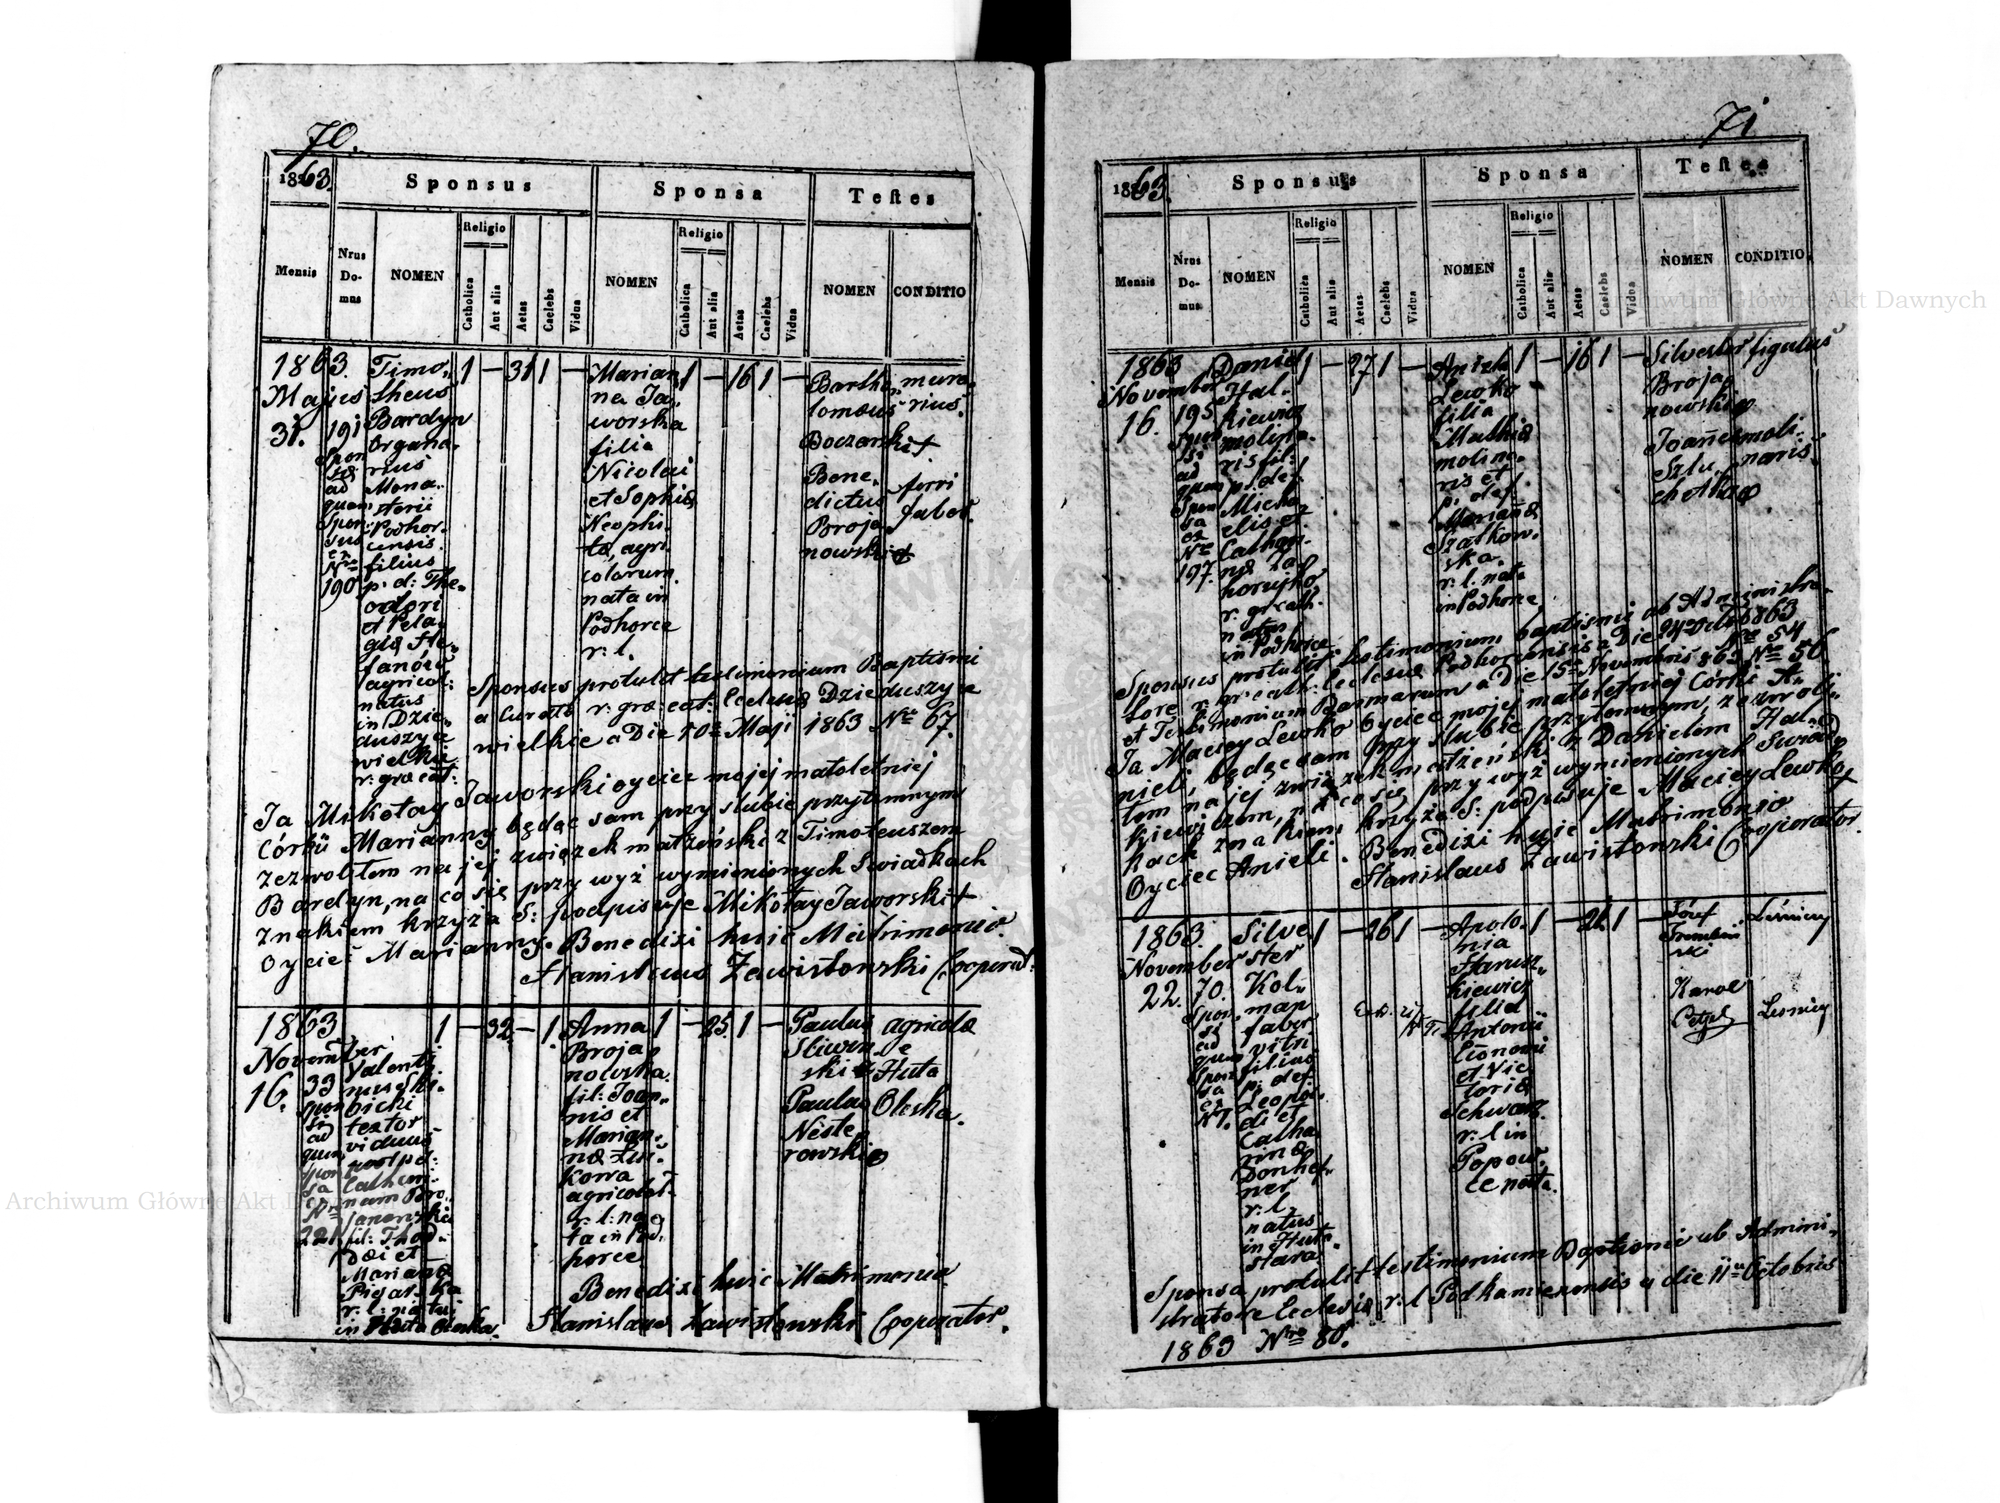 70.
1863.
Sponsus
Sponsa
Testes
Mensis
Nrus
Do-
mus
NOMEN
Religio
Catholica
Aut alia
Aetas
Caelebs
Vidua
NOMEN
Religio
Catholica
Aut alia
Aetas
Caelebs
Vidua
NOMEN
CONDITIO
1863.
Majus
31.
191
Spon
sa
ad
quam
Spon
sus
ex
Nro
190
Timo-
theus
Bardyn
Organa-
rius
Mona-
sterii
Podhor-
censis
filius
p. d: The-
odori
et Pela-
giæ Ste-
fanów
agricol:
natus
in Dzie-
duszyce
wielkie
r: græ cat:
1 — 31 1 —
Marian-
na Ja-
worska
filia
Nicolai
et Sophiæ
Neophi-
ta, agri-
colarum
nata in
Podhorce
r: l.
1 — 16 1 —
Bartho-
lomæus
Boczarski +
Bene-
dictus
Broja-
nowski +
mura-
rius.
ferri
faber.
Sponsus protulit testimonium Baptismi
a Curato r: græ: cat: Ecclesiæ Dzieduszyce
wielkie a Die 10a Maji 1863 Nro 67.
Ja Mikołay Jaworski oyciec mojej małoletniej
Córki Marianny będąc sam przy slubie przytomnym
zezwoliłem na jej związek małżeński z Timoteuszem
Bardyn, na co się przy wyż wymienionych Swiadkach
znakiem krzyża S: podpisuje Mikołay Jaworski +
Oyciec Marianny. Benedixi huic Matrimonio
Stanislaus Zawistowski Cooperat:
1863
November
16.
33
spon
si
ad
quam
spon
sa
ex
Nro
221
Valenti-
nus
bicki
textor
viduus
post p d:
Catheri-
nam Bro-
janowska
fil: Thad-
dæi et
Mariannæ
Pigarska
r: l: natus
in Huta Oleska.
1 — 32 — 1.
Anna
Broja-
nowska
fil: Joan-
nis et
Marian-
næ
kowa
agricolar.
r: l: na-
ta in Pod-
horce
1 — 25 1 —
Paulus
Sliwin-
ski +
Paulus
Neste-
rowski +
agricolæ
e
Huta
Oleska.
Benedixi huic Matrimonio
Stanislaus Zawistowski Cooperator.
71
1863.
Sponsus
Sponsa
Testes
Mensis
Nrus
Do-
mus
NOMEN
Religio
Catholica
Aut alia
Aetas
Caelebs
Vidua
NOMEN
Religio
Catholica
Aut alia
Aetas
Caelebs
Vidua
NOMEN
CONDITIO
1863
November
16.
195
spon
si
ad
quam
Spon
sa
ex
Nro
197.
Daniel
Hal-
kiewicz
molina-
ris fil:
p. def.
Micha-
elis et
Cathari-
næ Za-
horujko
r. gr cath.
natus
in Podhorce
1 — 27 1 —
Aniela
Lewko
filia
Mathiæ
molina-
ris et
p. def.
Mariannæ
Szałkow-
ska.
r: l. nata
in Podhorce
1 — 16 1 —
Silvester
Broja-
nowski +
Joannes
Szlu-
chotka +
figulus
moli-
naris.
Sponsus protulit testimonium baptismi ab Administra-
tore r: gr cath: Ecclesiæ Podhorcensis a Die 24 Octo 1863
et Testimonium Bannorum a Die 15a Novembris 863 Nro 54 Nro 56
Ja Maciey Lewko Oyciec mojej małoletniej Córki A-
nieli, będąc sam przy slubie przytomnym, zezwoli-
łem na jej związek małżeński z Danielem Hal-
kiewiczem, na co się, przy wyż wymienionych Swiad-
kach znakiem krzyża S: podpisuje Maciey Lewko +
Oyciec Anieli. Benedixi huic Matrimonio
Stanislaus Zawistowski Cooperator.
1863.
November
22.
70.
Spon
si
ad
quam
Spon
sa
ex
N 7.
Silve-
ster
Kol-
man
faber
vitri
filius
p. def.
Leopol-
di et
Catha-
rinæ
Donhef-
ner
r: l.
natus
in Huta
stara
1 — 26 1 —
Apolo-
nia
Starusz-
kiewicz
filia
Antonii
Economi
et Vic-
toriæ
Schwarz
r: l in
Popow-
ce nata.
1 — 26 1 —
Józef
Karol
Leśniczy
Lesniczy
Sponsa protulit testimonium Baptismi ab Admini-
stratore Ecclesiæ r: l Podkamienensis a die 11a Octobris
1863 Nro 80.
Archiwum Główne Akt Dawnych
Archiwum Główne Akt Dawnych